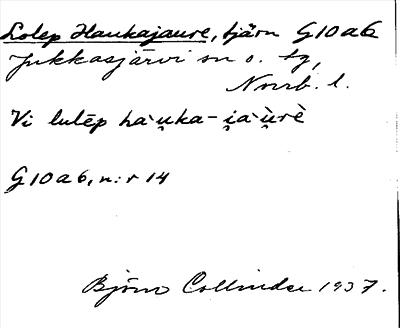 Lolep Haukajaure, tjärn G10a6
Jukkasjärvi sn o. tg,
Norrb. l.
Vi lulēp hàu̯ka-i̯àu̯rè
G10a6, n:r 14
Björn Collinder 1937.